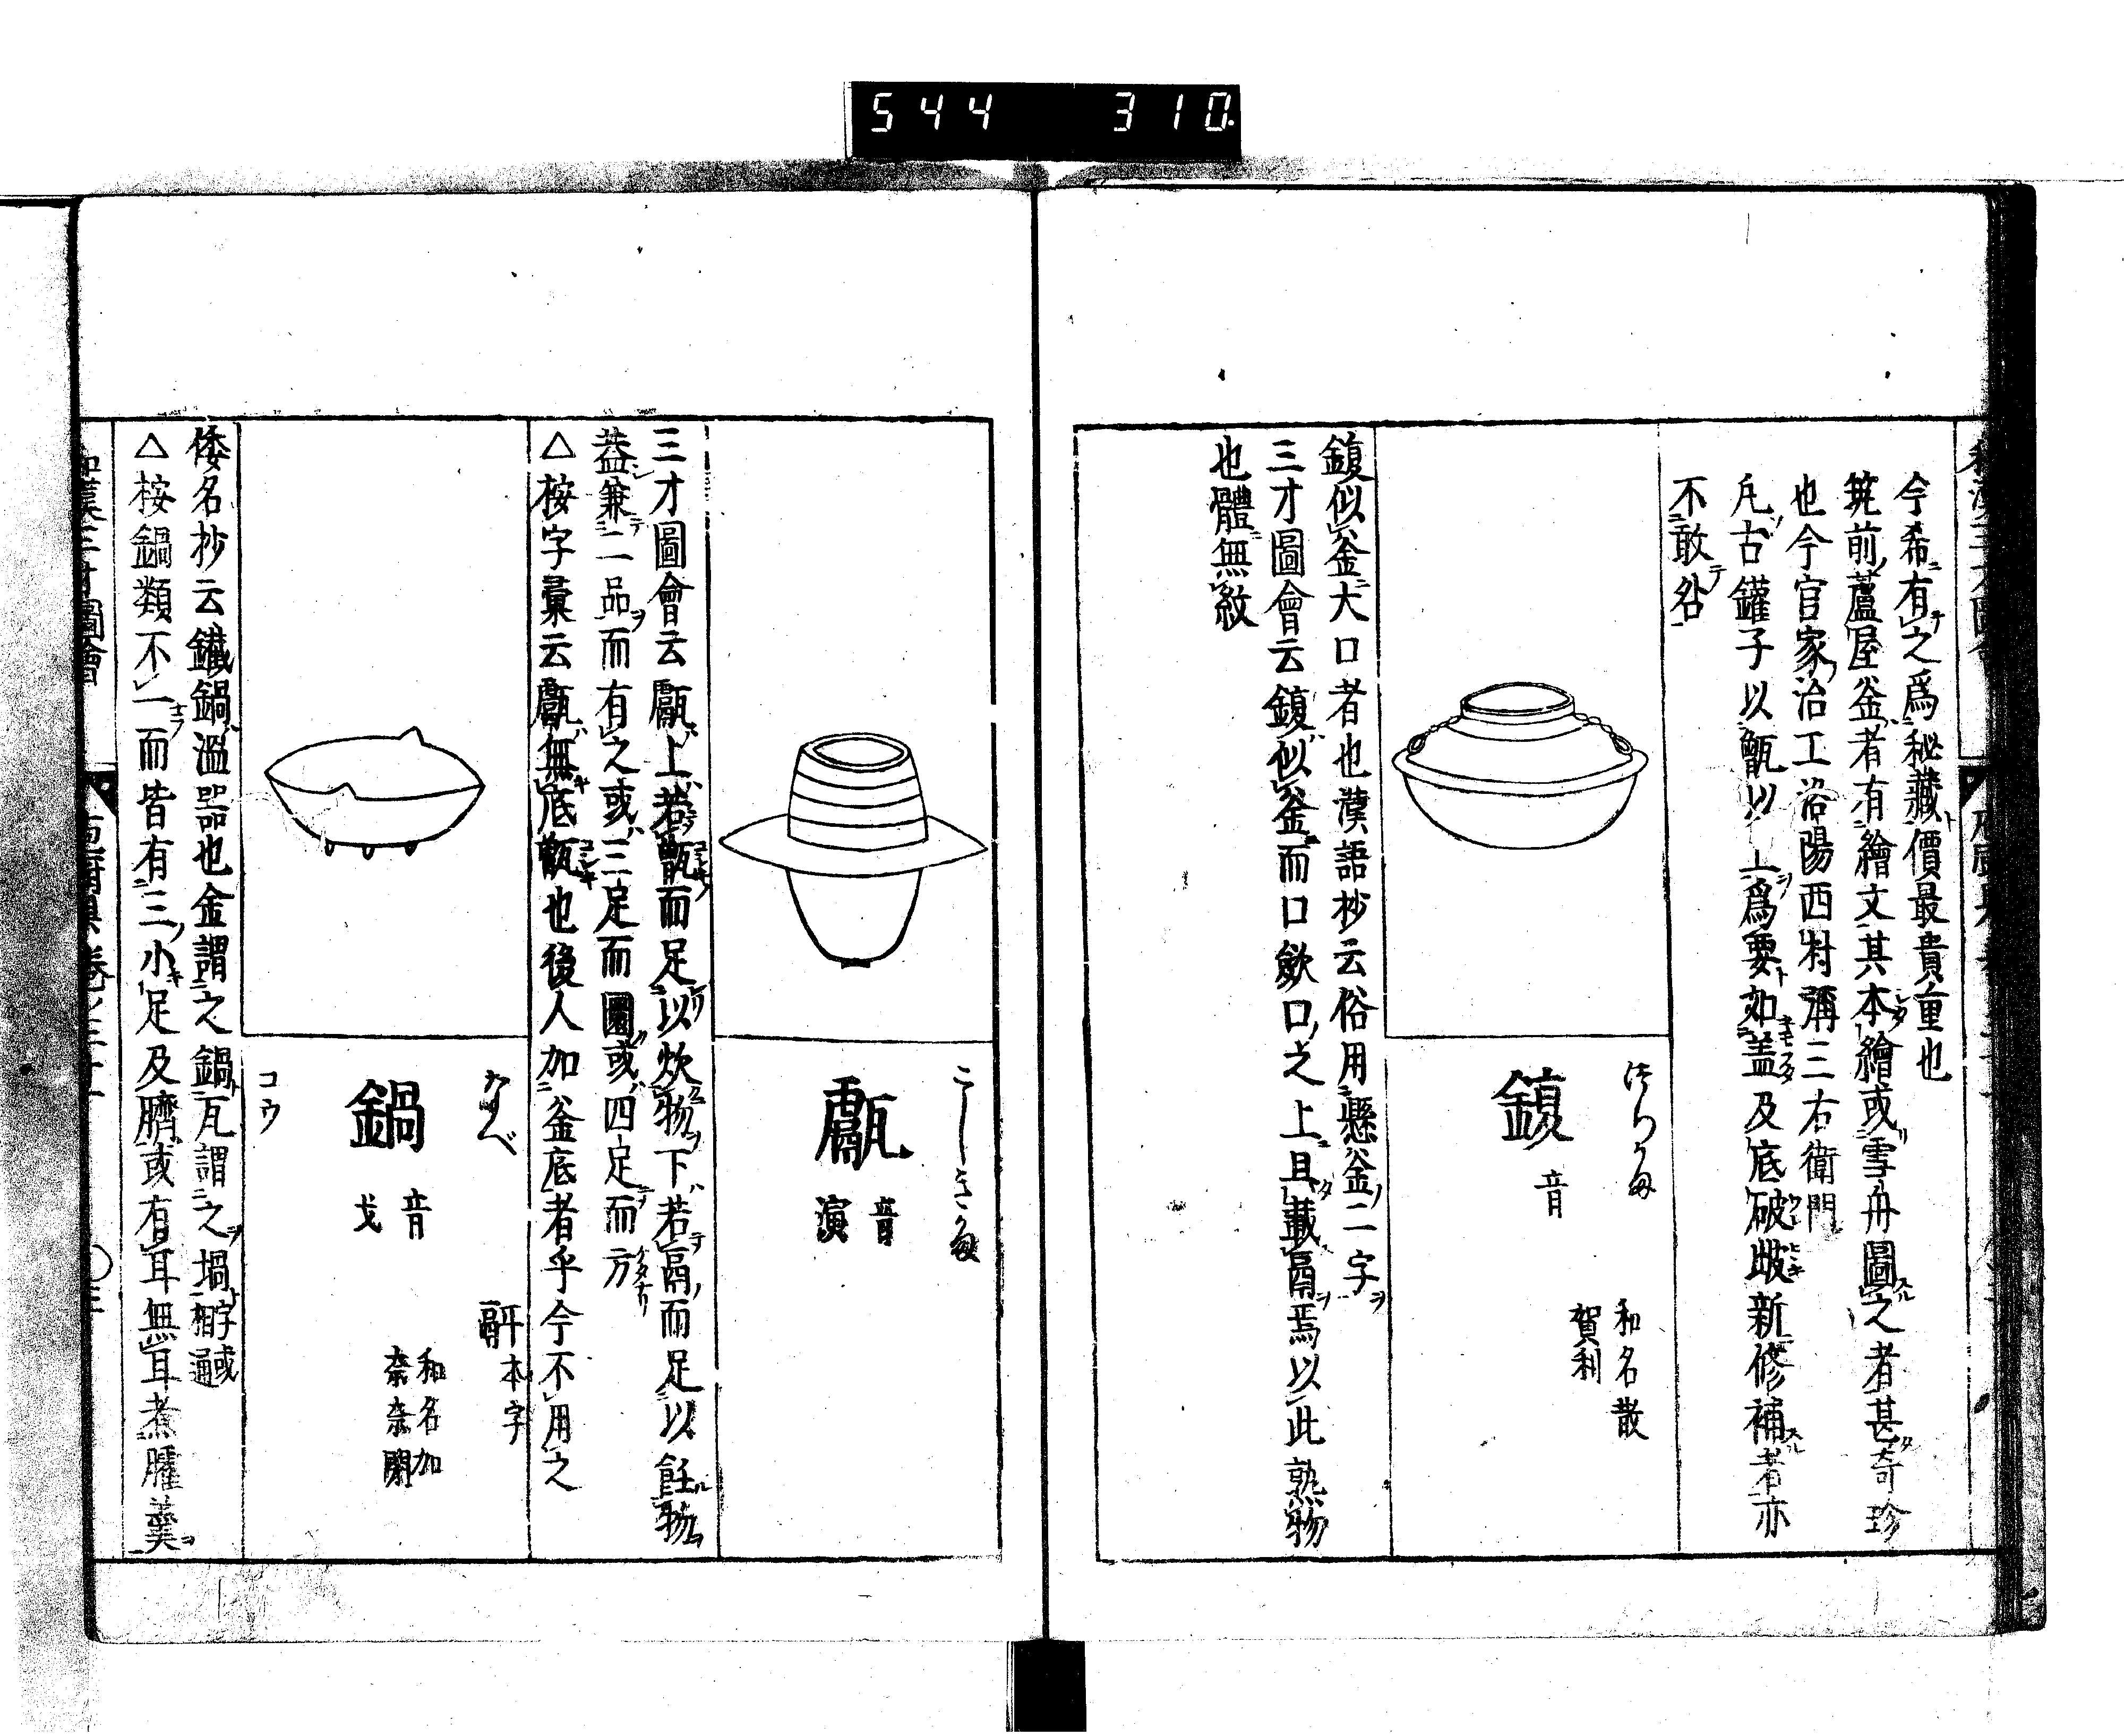 544 310
今希有之爲秘藏價最貴重也
筑前蘆屋釜者有繪文其本繪或雪舟圖之者甚奇珍
也今官家冶工洛陽西村彌三右衛門
凡古鑵子以甑以上爲要如盖及底破*新修補者亦
不敢咎
鍑
音
和名散
賀利
鍑似釜大口者也漢語抄云俗用懸釜二字
三才圖會云鍑似釜而口歛口之上且載鬲焉以此熟物
也體無紋
こしきなべ
甗
音
演
三才圖會云甗上若甑而足以炊物下若鬲而足以飪物
葢兼二品而有之或三足而圜或四足而方
△按字彙云甗無底甑也後人加釜底者乎今不用之
なべ
鍋
音
戈
コウ
本字
和名加
奈奈閉
倭名抄云鐵鍋溫器也金謂之鍋瓦謂之堝字或
相通
△按鍋類不一而皆有三小足及臍或有耳無耳煮臛羹